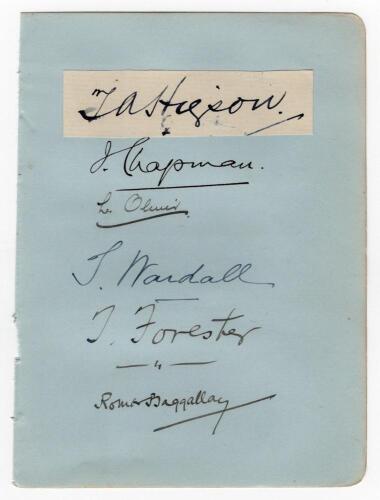 T A Higson.
J. Chapman.
L. Oliver.
T. Wardall
T. Forester
— " —
Romer Baggallay